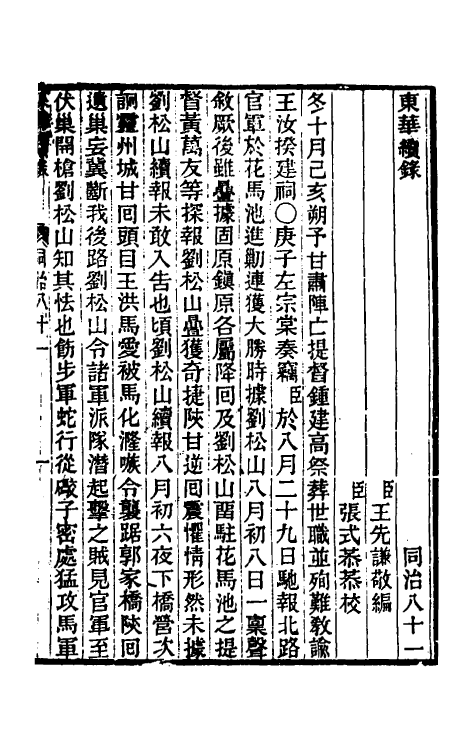 東華續錄　同治八十一
臣王先謙敬編
臣張式恭恭校
冬十月己亥朔予甘肅陣亡提督鍾建高祭葬世職並殉難敎諭
王汝揆建祠○庚子左宗棠奏竊臣於八月二十九日馳報北路
官軍於花馬池進勦連獲大勝時據劉松山八月初八日一稟聲
敘厥後雖疊據固原鎭原各屬降回及劉松山留駐花馬池之提
督黃萬友等探報劉松山疊獲奇捷陝甘逆回震懼情形然未據
劉松山續報未敢入告也頃劉松山續報八月初六夜下橋營次
詗靈州城甘回頭目王洪馬愛被馬化漋嗾令襲踞郭家橋陝回
遺巢妄冀斷我後路劉松山令諸軍派隊潛起擊之賊見官軍至
伏巢開槍劉松山知其怯也飭步軍蛇行從礮子密處猛攻馬軍
同治八十一